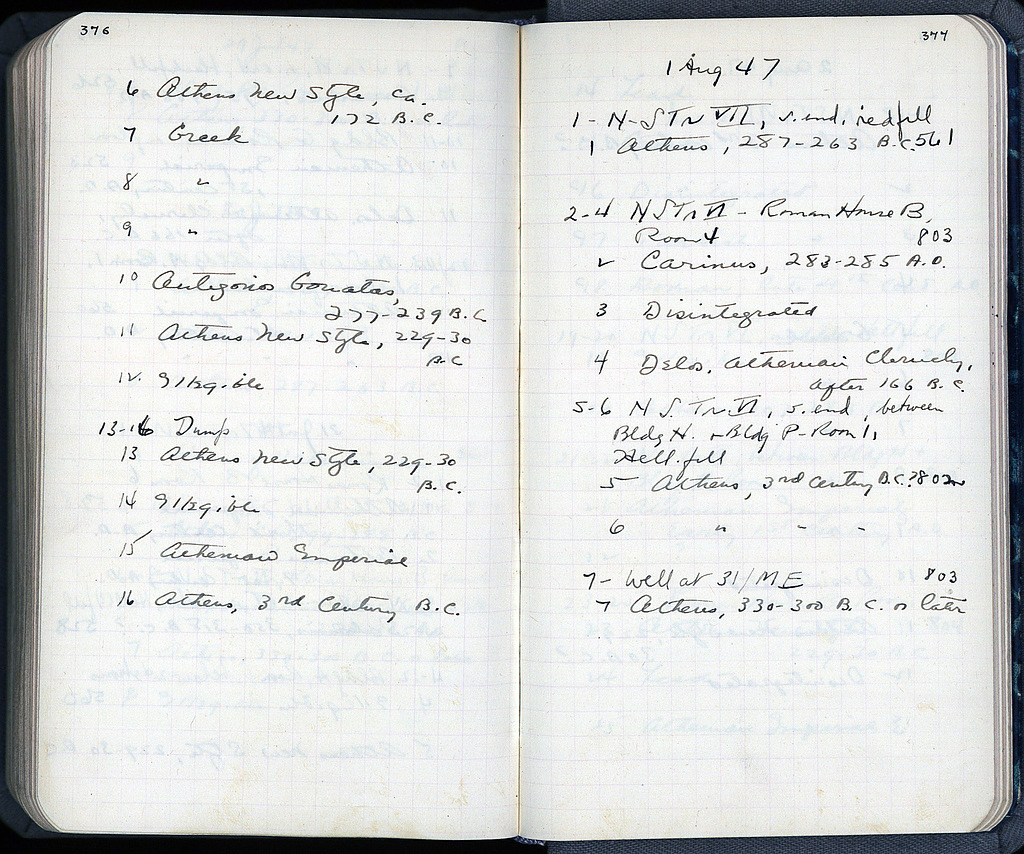 376
6 Athens New Style, ca.
172 B.C.
7 Greek
8 "
9 "
10 Antigonos Gonatas,
277-239 B.C
11 Athens New Style, 229-30
B.C
12. Illegible
13-16 Dump
13 Athens New Style, 229-30
B.C.
14 Illegible
15 Athenian Imperial
16 Athens, 3rd Century B.C.
377
1 Aug 47
1 - N-S Tr VII, S. end, red fill
1 Athens, 287-263 B.C. 561
2-4 N S Tr VI - Roman House B,
Room 4 803
2 Carinus, 283-285 A.D.
3 Disintegrated
4 Delos, Athenian Cleruchy,
after 166 B.C.
5-6 N S. Tr. VI, S. end, between
Bldg H. + Bldg P - Room 1,
Hell. fill
5 Athens, 3rd Century B.C.? 802
6 " " "
7 - Well at 31/ME 803
7 Athens, 330-300 B.C. or later